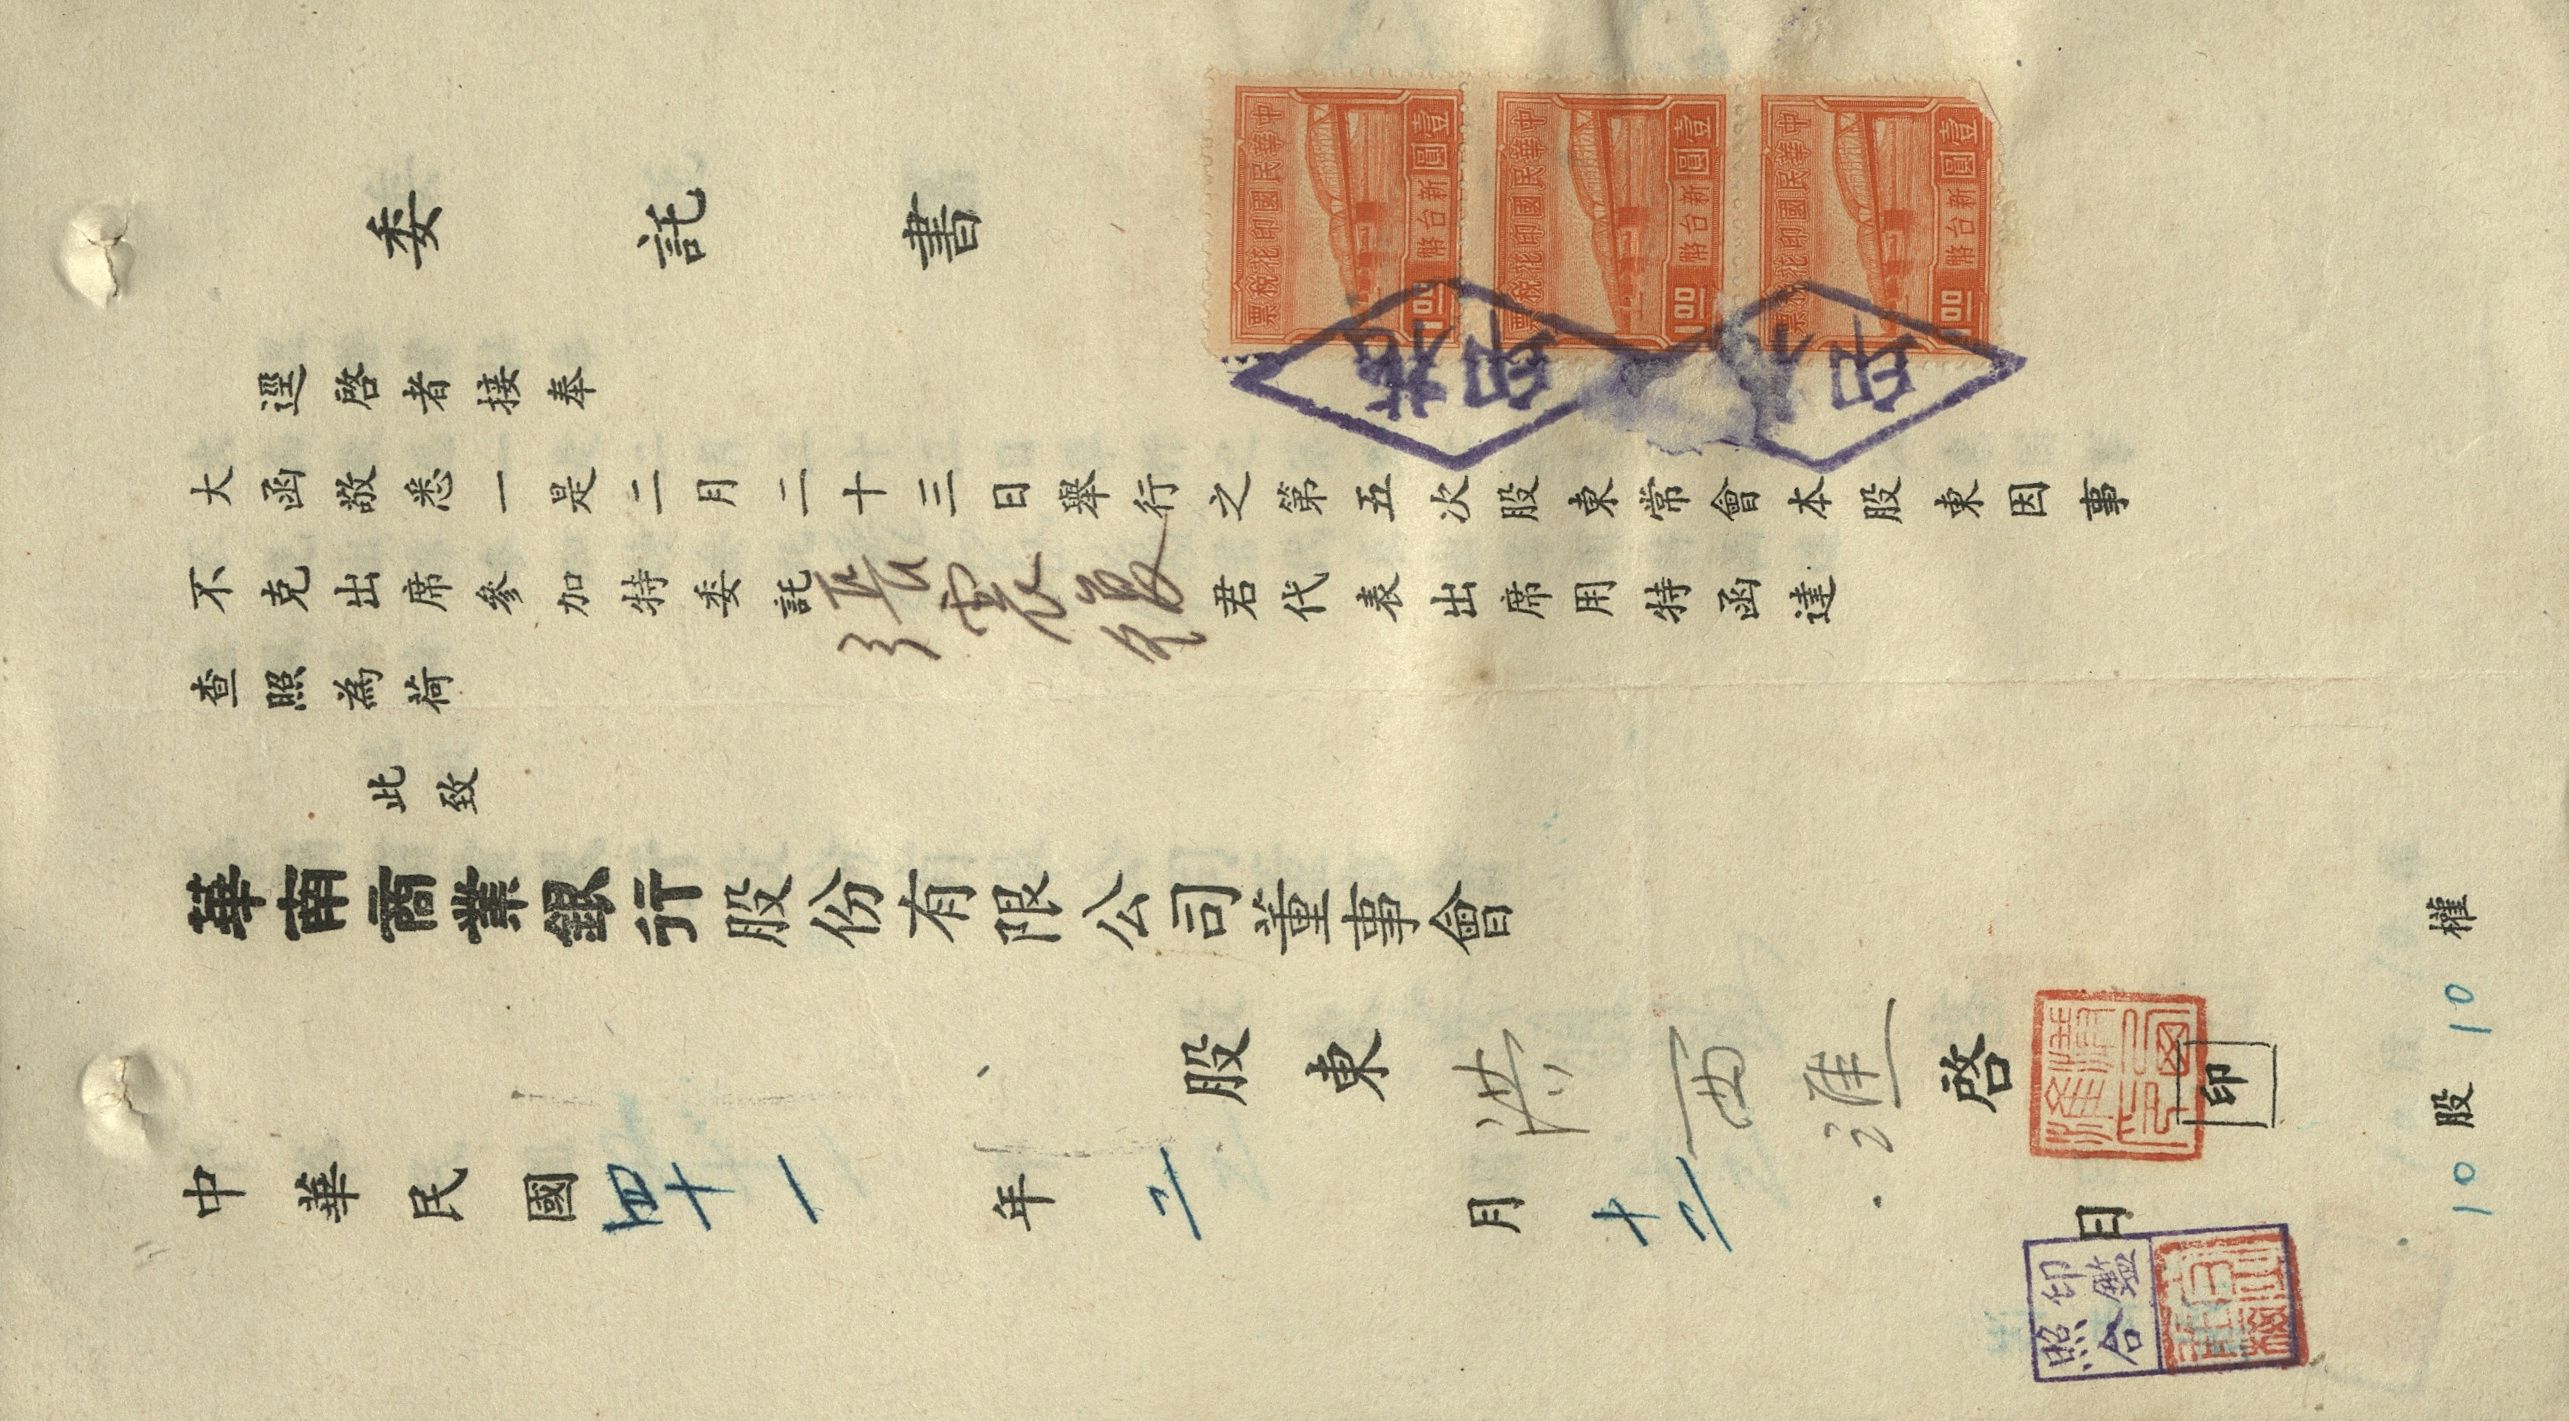 委託書
逕啓者接奉
大函敬悉一是二月二十三日舉行之第五次股東常會本股東因事
不克出席參加特委託張襄君代表出席用特函達
查照為荷
此致
華南商業銀行股份有限公司董事會
股東洪西淮啓
印
中華民國四十一年二月十二日
10股10權
印鑑
照合
中華民國印花稅票
壹圓新台幣
1.00
中華民國印花稅票
壹圓新台幣
1.00
中華民國印花稅票
壹圓新台幣
1.00